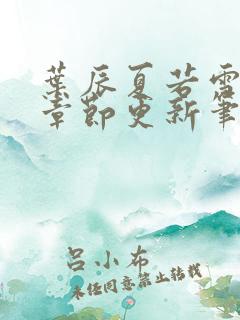 葉辰夏若雪
章節更新筆
呂小布
未经同意禁止转载